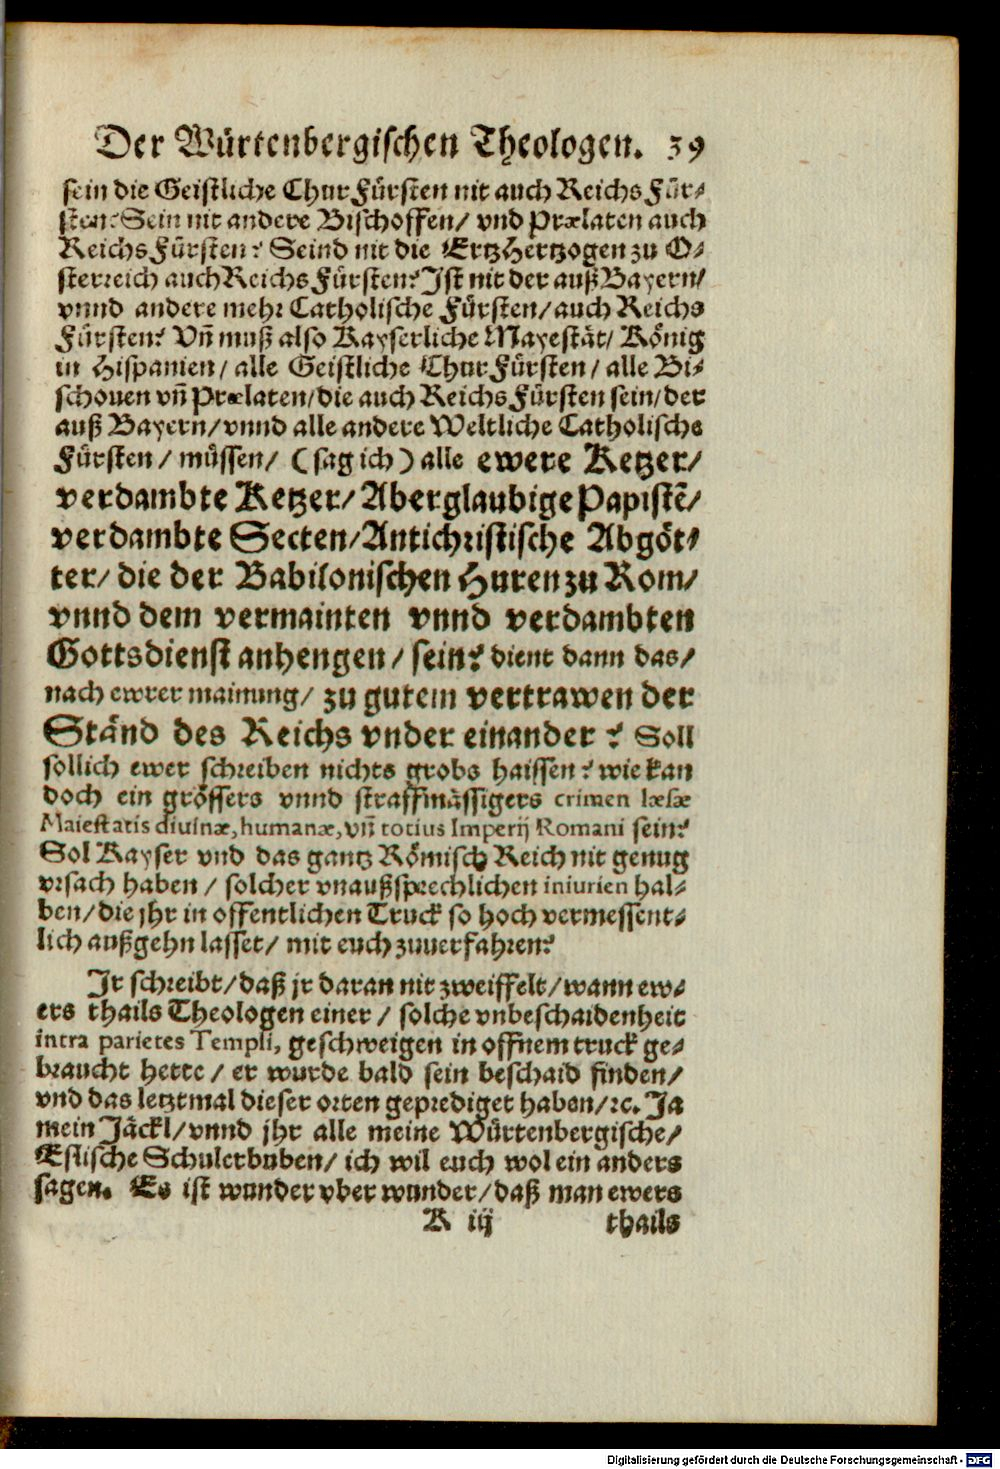 Der Würtenbergischen Theologen. 39
sein die Geistliche ChurFürsten nit auch ReichsFür⸗
sten? Sein nit andere Bischoffen/ vnd Prælaten auch
ReichsFürsten? Seind nit die ErtzHertzogen zu O⸗
sterreich auch ReichsFürsten? Ist nit der auß Bayern/
vnnd andere mehr Catholische Fürsten/ auch Reichs
Fürsten? Vñ muß also Kayserliche Mayestät/ König
in Hispanien/ alle Geistliche ChurFürsten/ alle Bi⸗
schouen vñ Prælaten/ die auch ReichsFürsten sein/ der
auß Bayern/ vnnd alle andere Weltliche Catholische
Fürsten/ müssen/ (sag ich) alle ewere Ketzer/
verdambte Ketzer/ Aberglaubige Papistẽ/
verdambte Secten/ Antichristische Abgöt⸗
ter/ die der Babilonischen Huren zu Rom/
vnnd dem vermainten vnnd verdambten
Gottsdienst anhengen/ sein? dient dann das/
nach ewrer mainung/ zu gutem vertrawen der
Ständ des Reichs vnder einander? Soll
sollich ewer schreiben nichts grobs haissen? wie kan
doch ein grössers vnnd straffmässigers crimen læsæ
Maiestatis diuinæ, humanæ, vñ totius Imperij Romani sein?
Sol Kayser vnd das gantz Römisch Reich nit genug
vrsach haben/ solcher vnaußsprechlichen iniurien hal⸗
ben/ die jhr in offentlichen Truck so hoch vermessent⸗
lich außgehn lasset/ mit euch zuuerfahren?
Ir schreibt/ daß jr daran nit zweiffelt/ wann ew⸗
ers thails Theologen einer/ solche vnbeschaidenheit
intra parietes Templi, geschweigen in offnem truck ge⸗
braucht hette/ er wurde bald sein beschaid finden/
vnd das letztmal dieser orten geprediget haben/ ꝛc. Ja
mein Jäckl/ vnnd jhr alle meine Würtenbergische/
Eslische Schulerbuben/ ich wil euch wol ein anders
sagen. Es ist wunder vber wunder/ daß man ewers
K iij thails
Digitalisierung gefördert durch die Deutsche Forschungsgemeinschaft - DFG